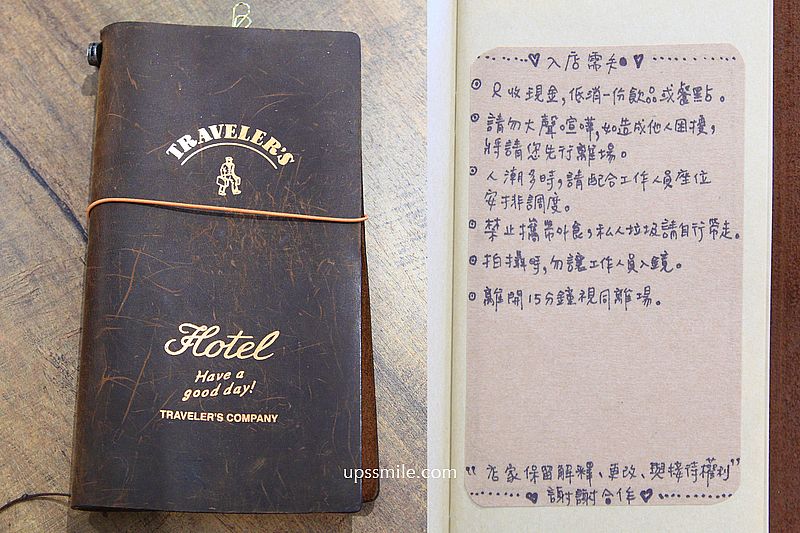 TRAVELER'S
Hotel
Have a
good day!
TRAVELER'S COMPANY
入店需知
只收現金，低消一份飲品或餐點。
請勿大聲喧嘩，如造成他人困擾，
將請您先行離場。
人潮多時，請配合工作人員座位
安排調度。
禁止攜帶外食，私人垃圾請自行帶走。
拍攝時，勿讓工作人員入鏡。
離開15分鐘視同離場。
"店家保留解釋、更改、與接待權利"
謝謝合作
upssmile.com